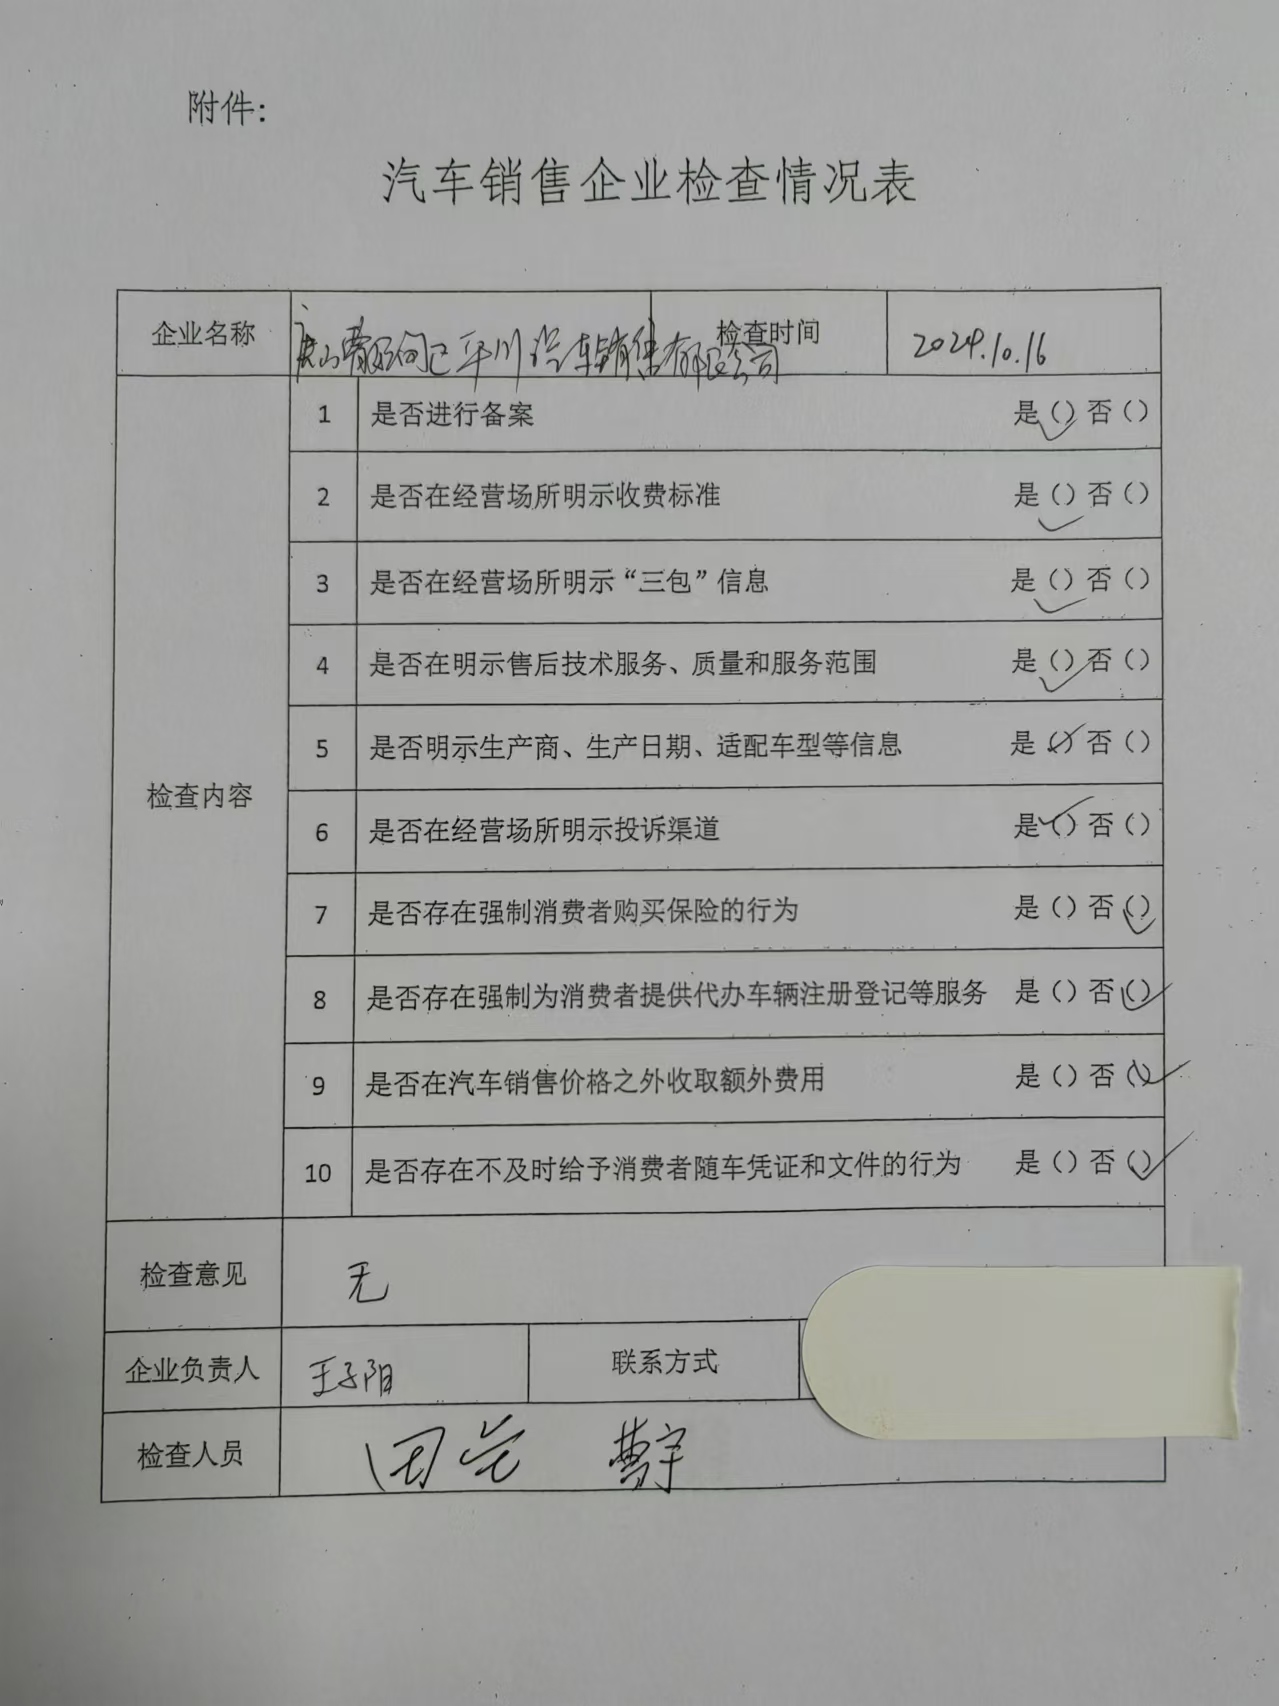 附件：
汽车销售企业检查情况表
企业名称 平川汽车销售有限公司 检查时间 2024.10.16
检查内容
1 是否进行备案 是（）✓ 否（）
2 是否在经营场所明示收费标准 是（）✓ 否（）
3 是否在经营场所明示“三包”信息 是（）✓ 否（）
4 是否在明示售后技术服务、质量和服务范围 是（）✓ 否（）
5 是否明示生产商、生产日期、适配车型等信息 是（✓）否（）
6 是否在经营场所明示投诉渠道 是（✓）否（）
7 是否存在强制消费者购买保险的行为 是（）否（✓）
8 是否存在强制为消费者提供代办车辆注册登记等服务 是（）否（✓）
9 是否在汽车销售价格之外收取额外费用 是（）否（✓）
10 是否存在不及时给予消费者随车凭证和文件的行为 是（）否（✓）
检查意见 无
企业负责人 王子阳 联系方式
检查人员 田 曹宇